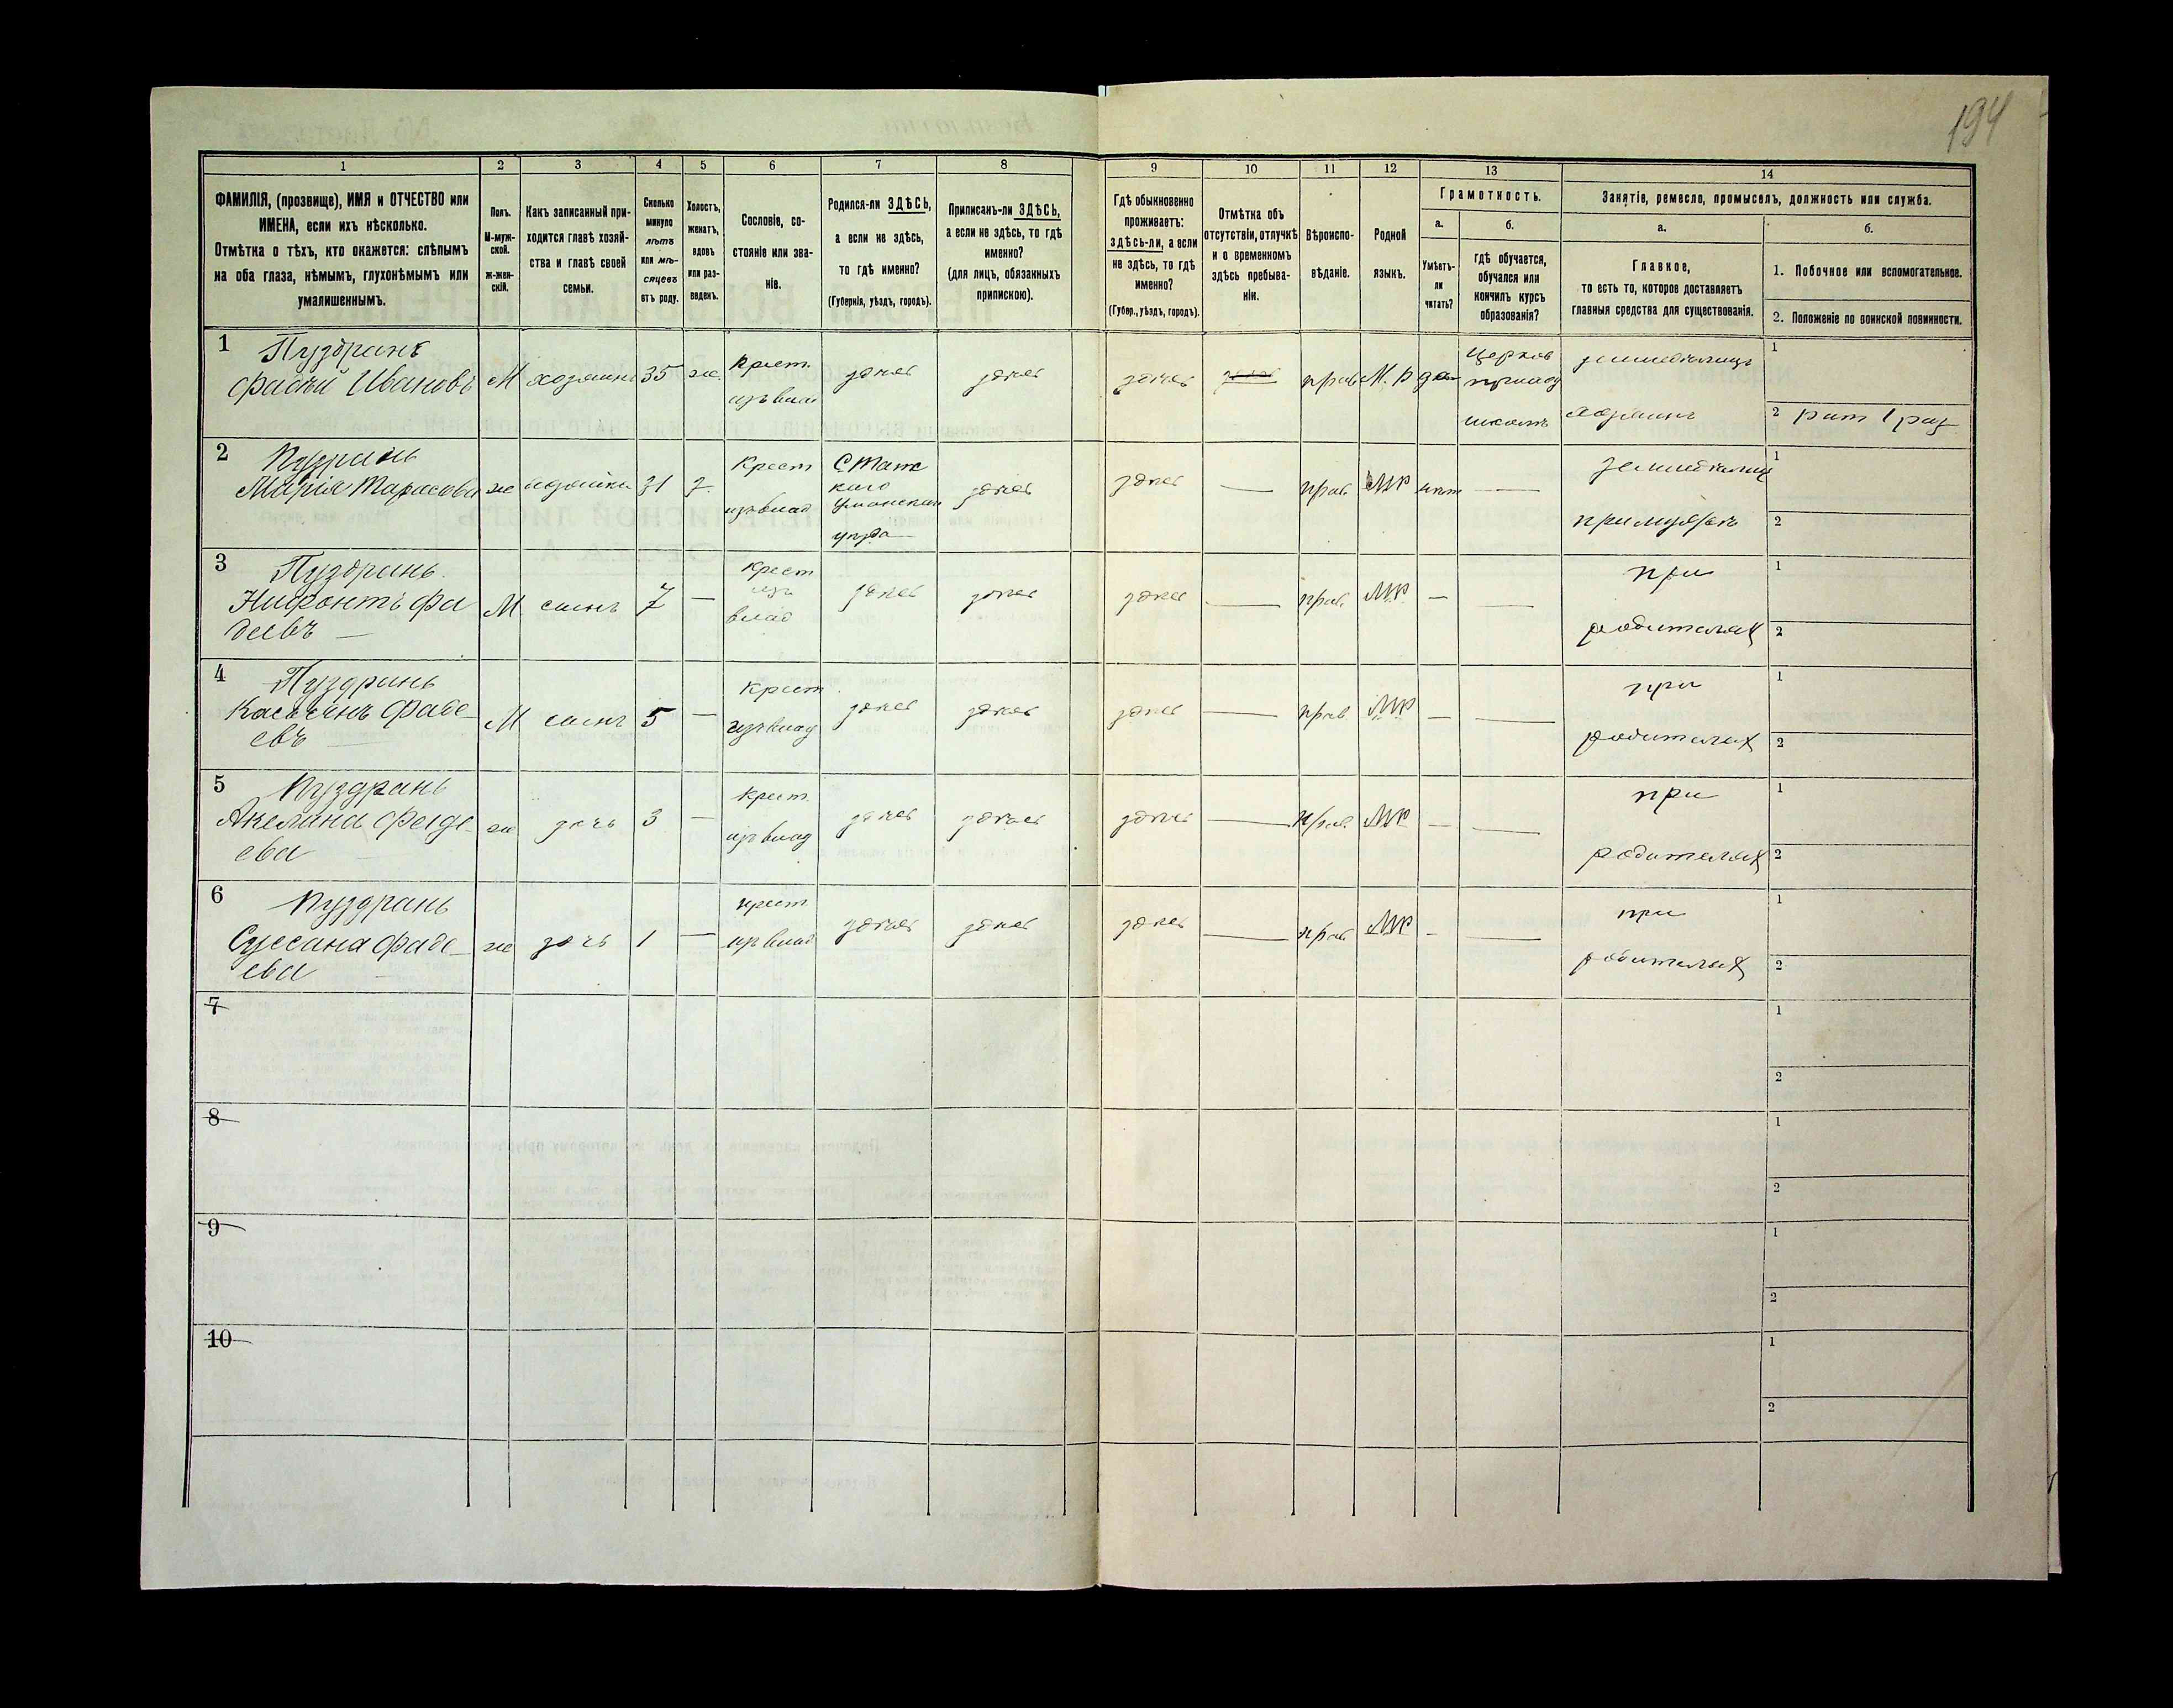 194
1 2 3 4 5 6 7 8 9 10 11 12 13 14
ФАМИЛІЯ, (прозвище), ИМЯ и ОТЧЕСТВО или
ИМЕНА, если ихъ нѣсколько.
Отмѣтка о тѣхъ, кто окажется: слѣпымъ
на оба глаза, нѣмымъ, глухонѣмымъ или
умалишеннымъ.
Полъ.
М-муж-
ской.
ж-жен-
скій.
Какъ записанный при-
ходится главѣ хозяй-
ства и главѣ своей
семьи.
Сколько
минуло
лѣтъ
или мѣ-
сяцевъ
отъ роду.
Холостъ,
женатъ,
вдовъ
или раз-
веденъ.
Сословіе, со-
стояніе или зва-
ніе.
Родился-ли ЗДѢСЬ,
а если не здѣсь,
то гдѣ именно?
(Губернія, уѣздъ, городъ).
Приписанъ-ли ЗДѢСЬ,
а если не здѣсь, то гдѣ
именно?
(для лицъ, обязанныхъ
припискою).
Гдѣ обыкновенно
проживаетъ:
здѣсь-ли, а если
не здѣсь, то гдѣ
именно?
(Губер., уѣздъ, городъ).
Отмѣтка объ
отсутствіи, отлучкѣ
и о временномъ
здѣсь пребыва-
ніи.
Вѣроиспо-
вѣданіе.
Родной
языкъ.
Грамотность.
а.
Умѣетъ-
ли
читать?
б.
гдѣ обучается,
обучался или
кончилъ курсъ
образованія?
Занятіе, ремесло, промыселъ, должность или служба.
а.
Главное,
то есть то, которое доставляетъ
главныя средства для существованія.
б.
1. Побочное или вспомогательное.
2. Положеніе по воинской повинности.
1 Пуздрань
Фадей Ивановъ М хозяинъ 35 ж. Крест. изъ влад здесь здесь здесь прав М. Р да
церков
приход
школѣ
земледелецъ
хозяинъ
1
2 рат 1 раз
2 Пуздрань
Марія Тарасова ж хозяйка 31 з. Крест изъ влад
Уманскаго
уезда
здесь здесь — прав. МР нет —
земледелец
при мужѣ
1
2
3 Пуздрань
Нифонтъ Фа
деевъ — М сынъ 7 — Крест изъ влад здесь здесь здесь — прав. МР — —
при
родителях
1
2
4 Пуздрань
Касьянъ Фаде-
евъ — М сынъ 5 — Крест изъ влад здесь здесь здесь — прав МР — —
при
родителях
1
2
5 Пуздрань
Акелина Фаде-
ева ж дочь 3 — Крест изъ влад здесь здесь здесь — прав. МР — —
при
родителях
1
2
6 Пуздрань
Суссана Фаде-
ева ж дочь 1 — крест изъ влад здесь здесь здесь — прав МР — —
при
родителях
1
2
7
1
2
8
1
2
9
1
2
10
1
2